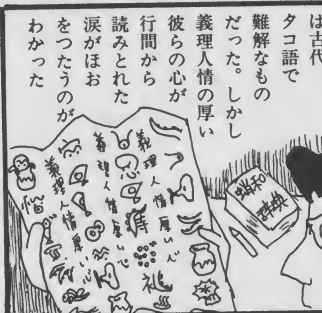 は古代
タコ語で
難解なもの
だった。しかし
義理人情の厚い
彼らの心が
行間から
読みとれた
涙がほお
をつたうのが
わかった
蛸和
辞典
義理人情厚い心
義理人情厚い心
義理人情厚い心